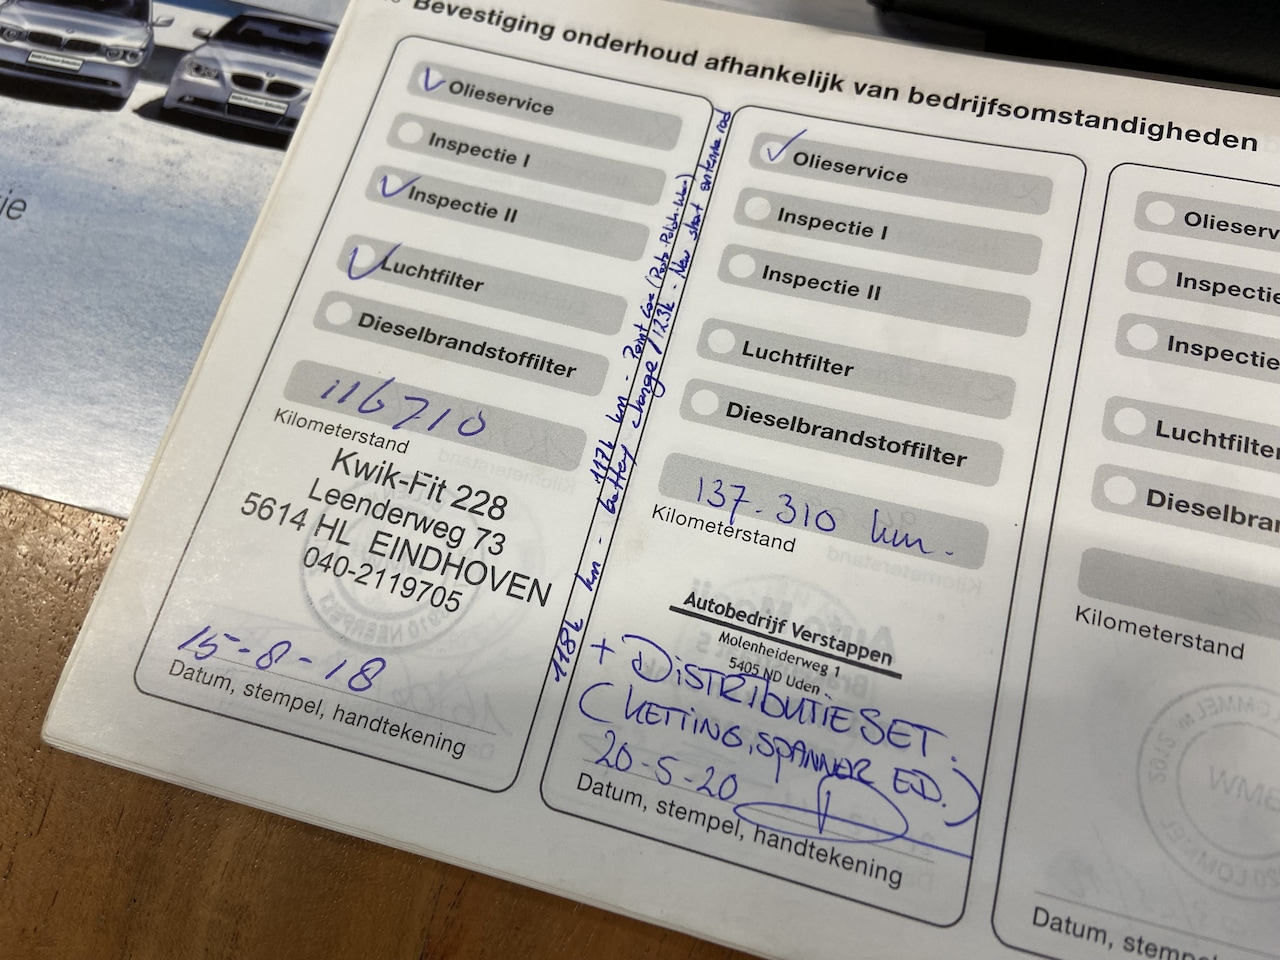 Bevestiging onderhoud afhankelijk van bedrijfsomstandigheden
je
Olieservice
Inspectie I
Inspectie II
Luchtfilter
Dieselbrandstoffilter
116710
Kilometerstand
Kwik-Fit 228
Leenderweg 73
5614 HL EINDHOVEN
040-2119705
15-8-18
Datum, stempel, handtekening
117k km - Paint Care (Pasta-Polish-Wax)
118k km - battery change / 123k - New short antenna rod
Olieservice
Inspectie I
Inspectie II
Luchtfilter
Dieselbrandstoffilter
137.310 km.
Kilometerstand
Autobedrijf Verstappen
Molenheiderweg 1
5405 ND Uden
+ DISTRIBUTIE SET.
(KETTING, SPANNER ED.)
20-5-20
Datum, stempel, handtekening
Olieserv
Inspectie
Inspectie
Luchtfilter
Dieselbra
Kilometerstand
Datum, stem